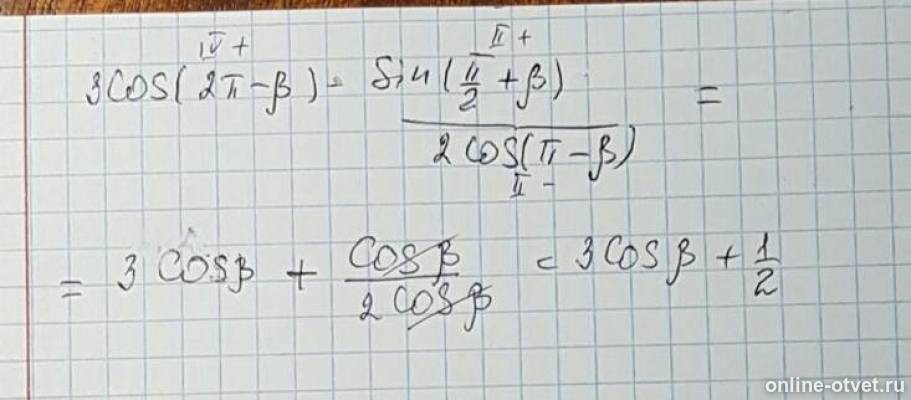 IV + II +
3cos(2π-β) - sin(π/2 + β) =
2 cos(π-β)
II -
= 3cosβ + cosβ/2cosβ = 3cosβ + 1/2
online-otvet.ru